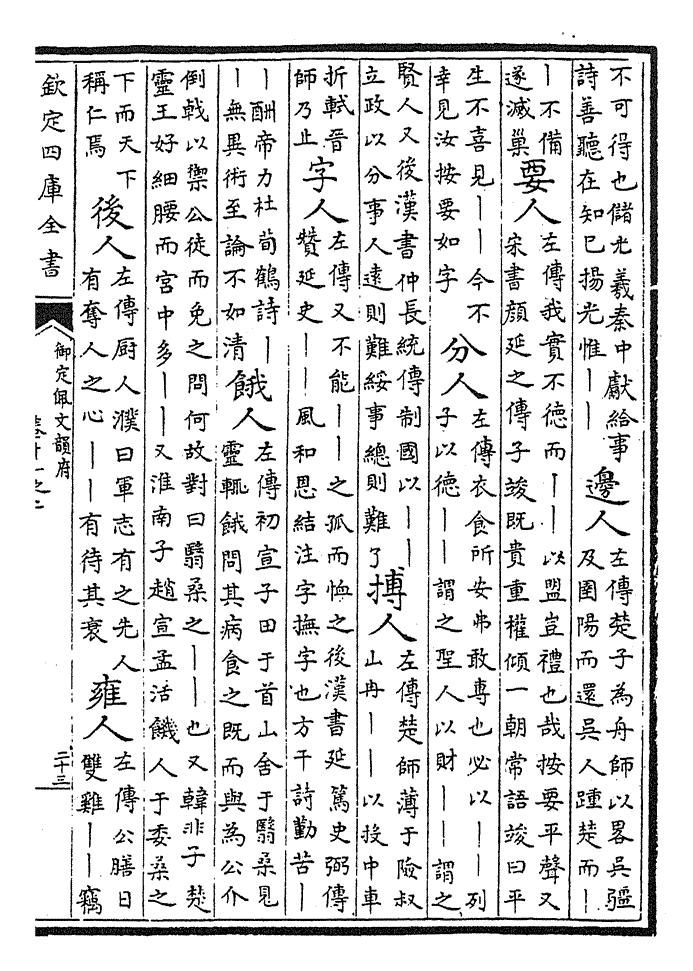 不可得也儲光羲秦中獻給事
詩善聽在知巳揚光惟丨丨
邊人
左傳楚子為舟師以畧吳疆
及圉陽而還吳人踵楚而丨
丨不備
遂滅巢
要人
左傳我實不德而丨丨以盟豈禮也哉按要平聲又
宋書顏延之傳子竣既貴重權傾一朝常語竣曰平
生不喜見丨丨今不
幸見汝按要如字
分人
左傳衣食所安弗敢專也必以丨丨列
子以德丨丨謂之聖人以財丨丨謂之
賢人又後漢書仲長統傳制國以丨丨
立政以分事人遠則難綏事總則難了
搏人
左傳楚師薄于險叔
山冉丨丨以投中車
折軾晉
師乃止
字人
左傳又不能丨丨之孤而恤之後漢書延篤史弼傳
贊延史丨丨風和恩結注字撫字也方干詩勸苦丨
丨酬帝力杜荀鶴詩丨
丨無異術至論不如清
餓人
左傳初宣子田于首山舍于翳桑見
靈輒餓問其病食之既而與為公介
倒戟以禦公徒而免之問何故對曰翳桑之丨丨也又韓非子楚
靈王好細腰而宮中多丨丨又淮南子趙宣孟活饑人于委桑之
下而天下
稱仁焉
後人
左傳廚人濮曰軍志有之先人
有奪人之心丨丨有待其衰
雍人
左傳公膳日
雙雞丨丨竊
欽定四庫全書
御定佩文韻府
二十三